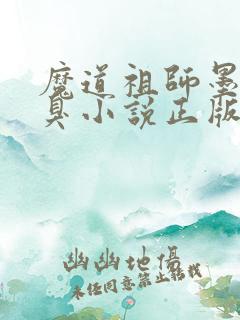 魔道祖师墨
臭小说正版
幽幽地傷
未经同意禁止转载